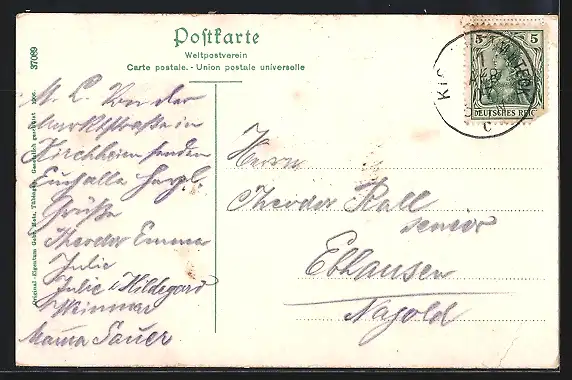 Postkarte
Weltpostverein
Carte postale. - Union postale universelle
37089
5 5
DEUTSCHES REICH
M. L. Von der
Marktstraße in
Kirchheim senden
Euch alle herzl.
Grüße
Theodor Emma
Julie
Julie u. Hildegard
Skinner
Mama Sauer
Herrn
Theodor Rall
senior
Ebhausen
Nagold
Original-Eigentum Gebr. Metz, Tübingen. Gesetzlich geschützt